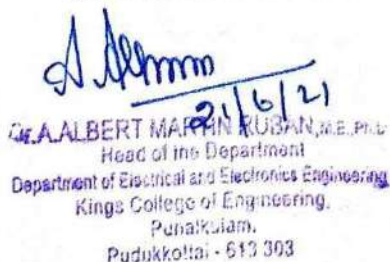 21/6/21
Dr.A.ALBERT MARTIN RUBAN,M.E.,Ph.D
Head of the Department
Department of Electrical and Electronics Engineering
Kings College of Engineering,
Punalkulam,
Pudukkottai - 613 303